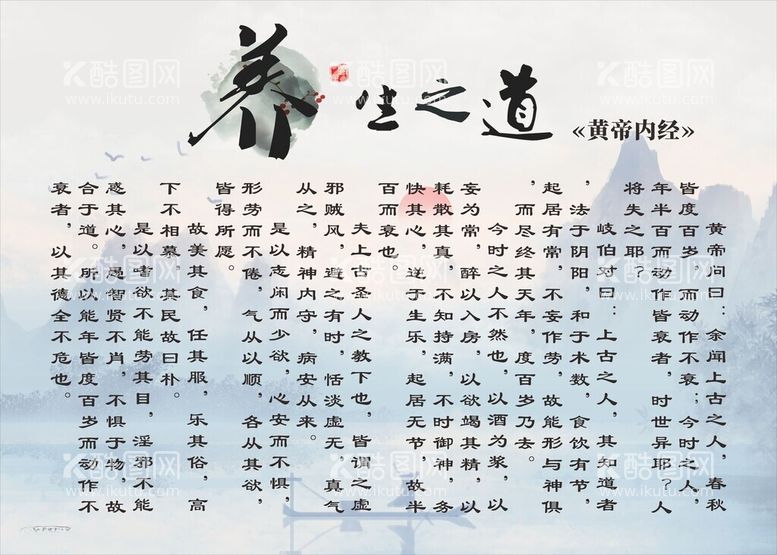 养生之道
《黄帝内经》
黄帝问曰：余闻上古之人，春秋
皆度百岁，而动作不衰；今时之人，
年半百而动作皆衰者，时世异耶？人
将失之耶？
岐伯对曰：上古之人，其知道者
，法于阴阳，和于术数，食饮有节，
起居有常，不妄作劳，故能形与神俱
，而尽终其天年，度百岁乃去。
今时之人不然也，以酒为浆，以
妄为常，醉以入房，以欲竭其精，以
耗散其真，不知持满，不时御神，务
快其心，逆于生乐，起居无节，故半
百而衰也。
夫上古圣人之教下也，皆谓之虚
邪贼风，避之有时，恬淡虚无，真气
从之，精神内守，病安从来。
是以志闲而少欲，心安而不惧，
形劳而不倦，气从以顺，各从其欲，
皆得所愿。
故美其食，任其服，乐其俗，高
下不相慕，其民故曰朴。
是以嗜欲不能劳其目，淫邪不能
惑其心，愚智贤不肖，不惧于物，故
合于道。所以能年皆度百岁而动作不
衰者，以其德全不危也。
酷图网
www.ikutu.com